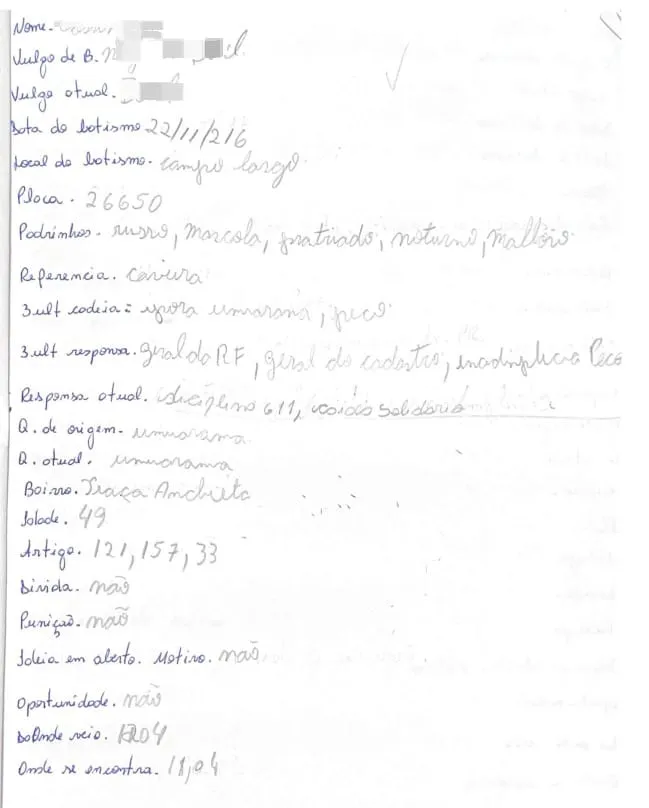 Nome.
Vulgo de B.
Vulgo atual.
Data do batismo 22/11/216
Local do batismo. campo largo
Placa. 26650
Padrinhos. russo, Marcola, noturno,
Referencia. caveira
3 ult cadeia:
3 ult responsa. geral do RF, geral do cadastro,
Responsa atual. 611,
Q. de origem. umuarama
Q. atual. umuarama
Bairro. Praça Anchieta
Idade. 49
Artigo. 121, 157, 33
Divida. não
Punição. não
Ideia em aberto. Motivo. não
Oportunidade. não
DaOnde veio. 1204
Onde se encontra. 18,04